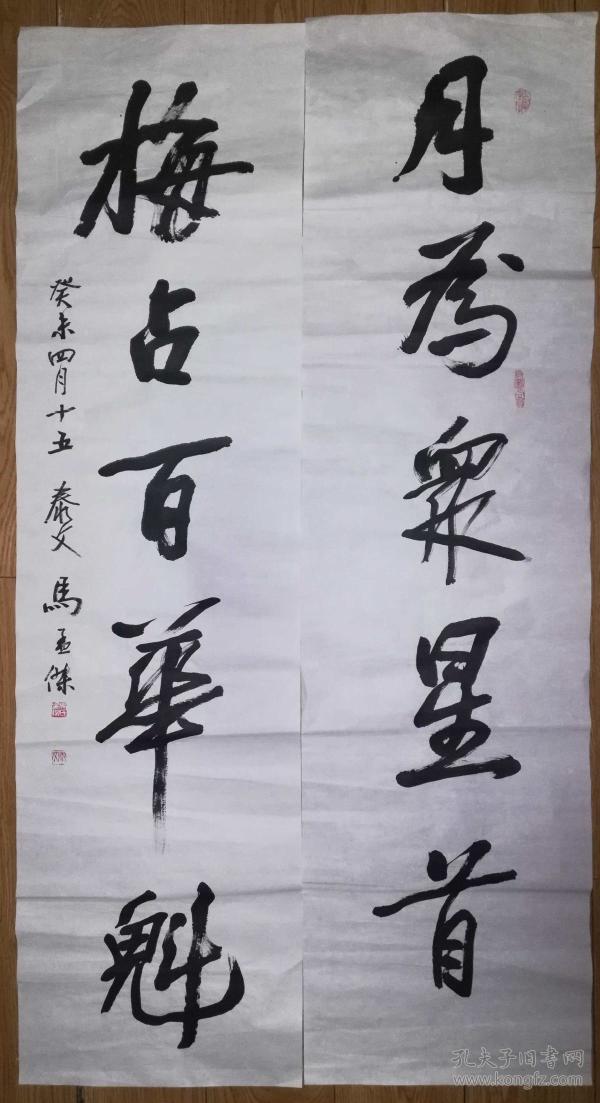 月為衆星首
梅占百華魁
癸未四月十五 泰父 馬孟傑
孔夫子旧书网
www.kongfz.com